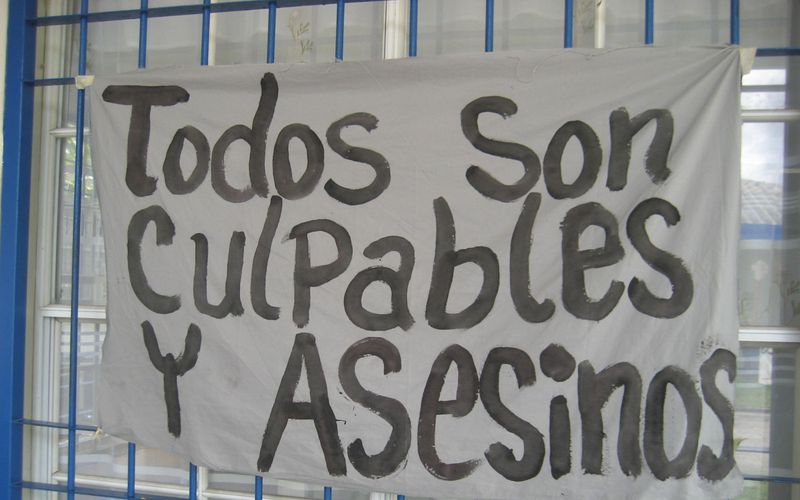 Todos son
Culpables
Y Asesinos